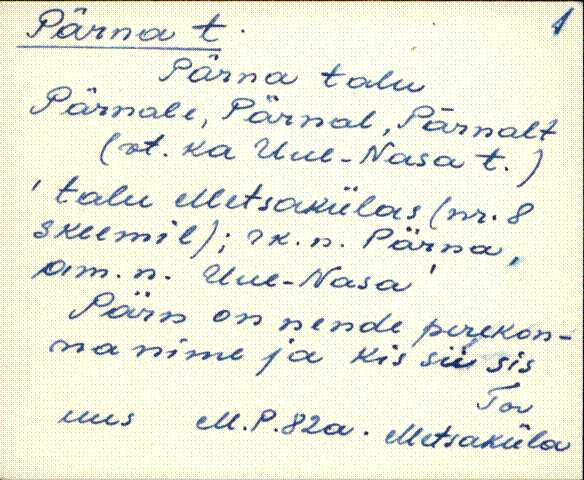 Pärna t. 1
Pärna talu
Pärnale, Pärnal, Pärnalt
(vt. ka Uue-Nasa t.)
' talu Metsakülas (nr. 8
skeemil); rk. n. Pärna,
am. n. Uue-Nasa'
Pärn on nende perekon-
na nime ja kis siis sis
Tor
uus M.P. 82a. Metsaküla